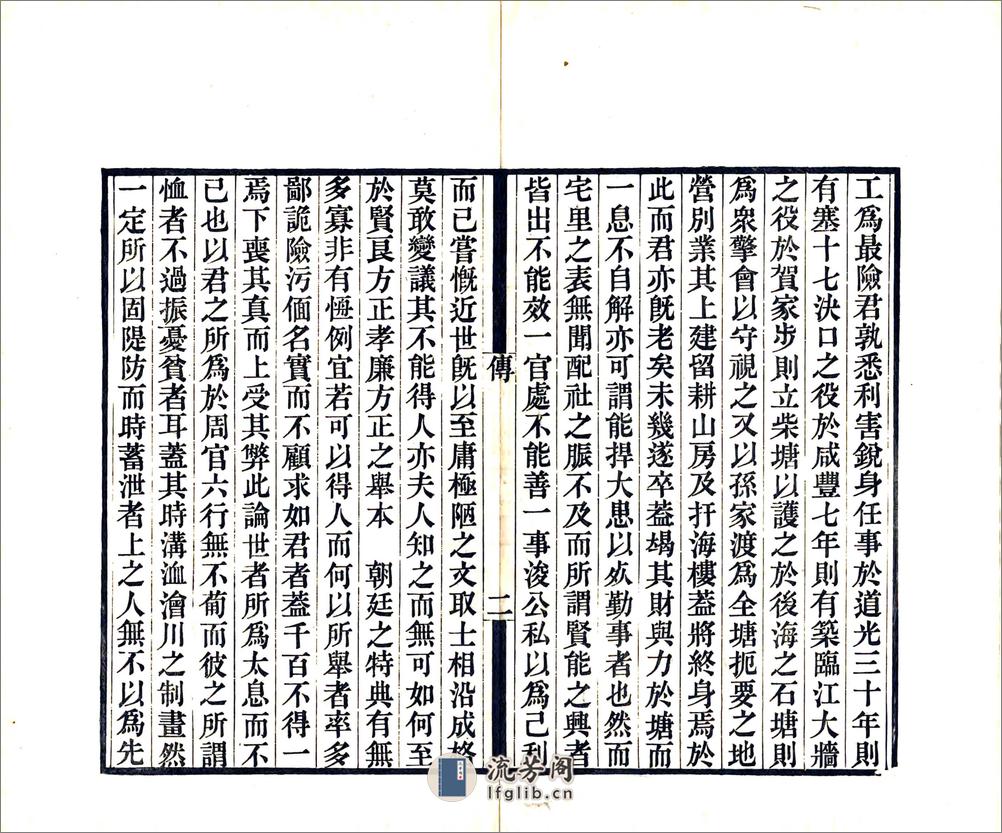 工為最險君孰悉利害銳身任事於道光三十年則
有塞十七決口之役於咸豐七年則有築臨江大牆
之役於賀家步則立柴塘以護之於後海之石塘則
為衆擎會以守視之又以孫家渡為全塘扼要之地
營別業其上建留耕山房及扞海樓蓋將終身焉於
此而君亦旣老矣未幾遂卒蓋竭其財與力於塘而
一息不自解亦可謂能捍大患以死勤事者也然而
宅里之表無聞配社之脤不及而所謂賢能之興者
皆出不能效一官處不能善一事浚公私以為己利
傳
二
而已嘗慨近世旣以至庸極陋之文取士相沿成格
莫敢變議其不能得人亦夫人知之而無可如何至
於賢良方正孝廉方正之舉本　朝廷之特典有無
多寡非有恆例宜若可以得人而何以所舉者率多
鄙詭險污偭名實而不顧求如君者蓋千百不得一
焉下喪其真而上受其弊此論世者所為太息而不
已也以君之所為於周官六行無不荀而彼之所謂
恤者不過振憂貧者耳蓋其時溝洫澮川之制畫然
一定所以固隄防而時蓄泄者上之人無不以為先
流芳阁
lfglib.cn